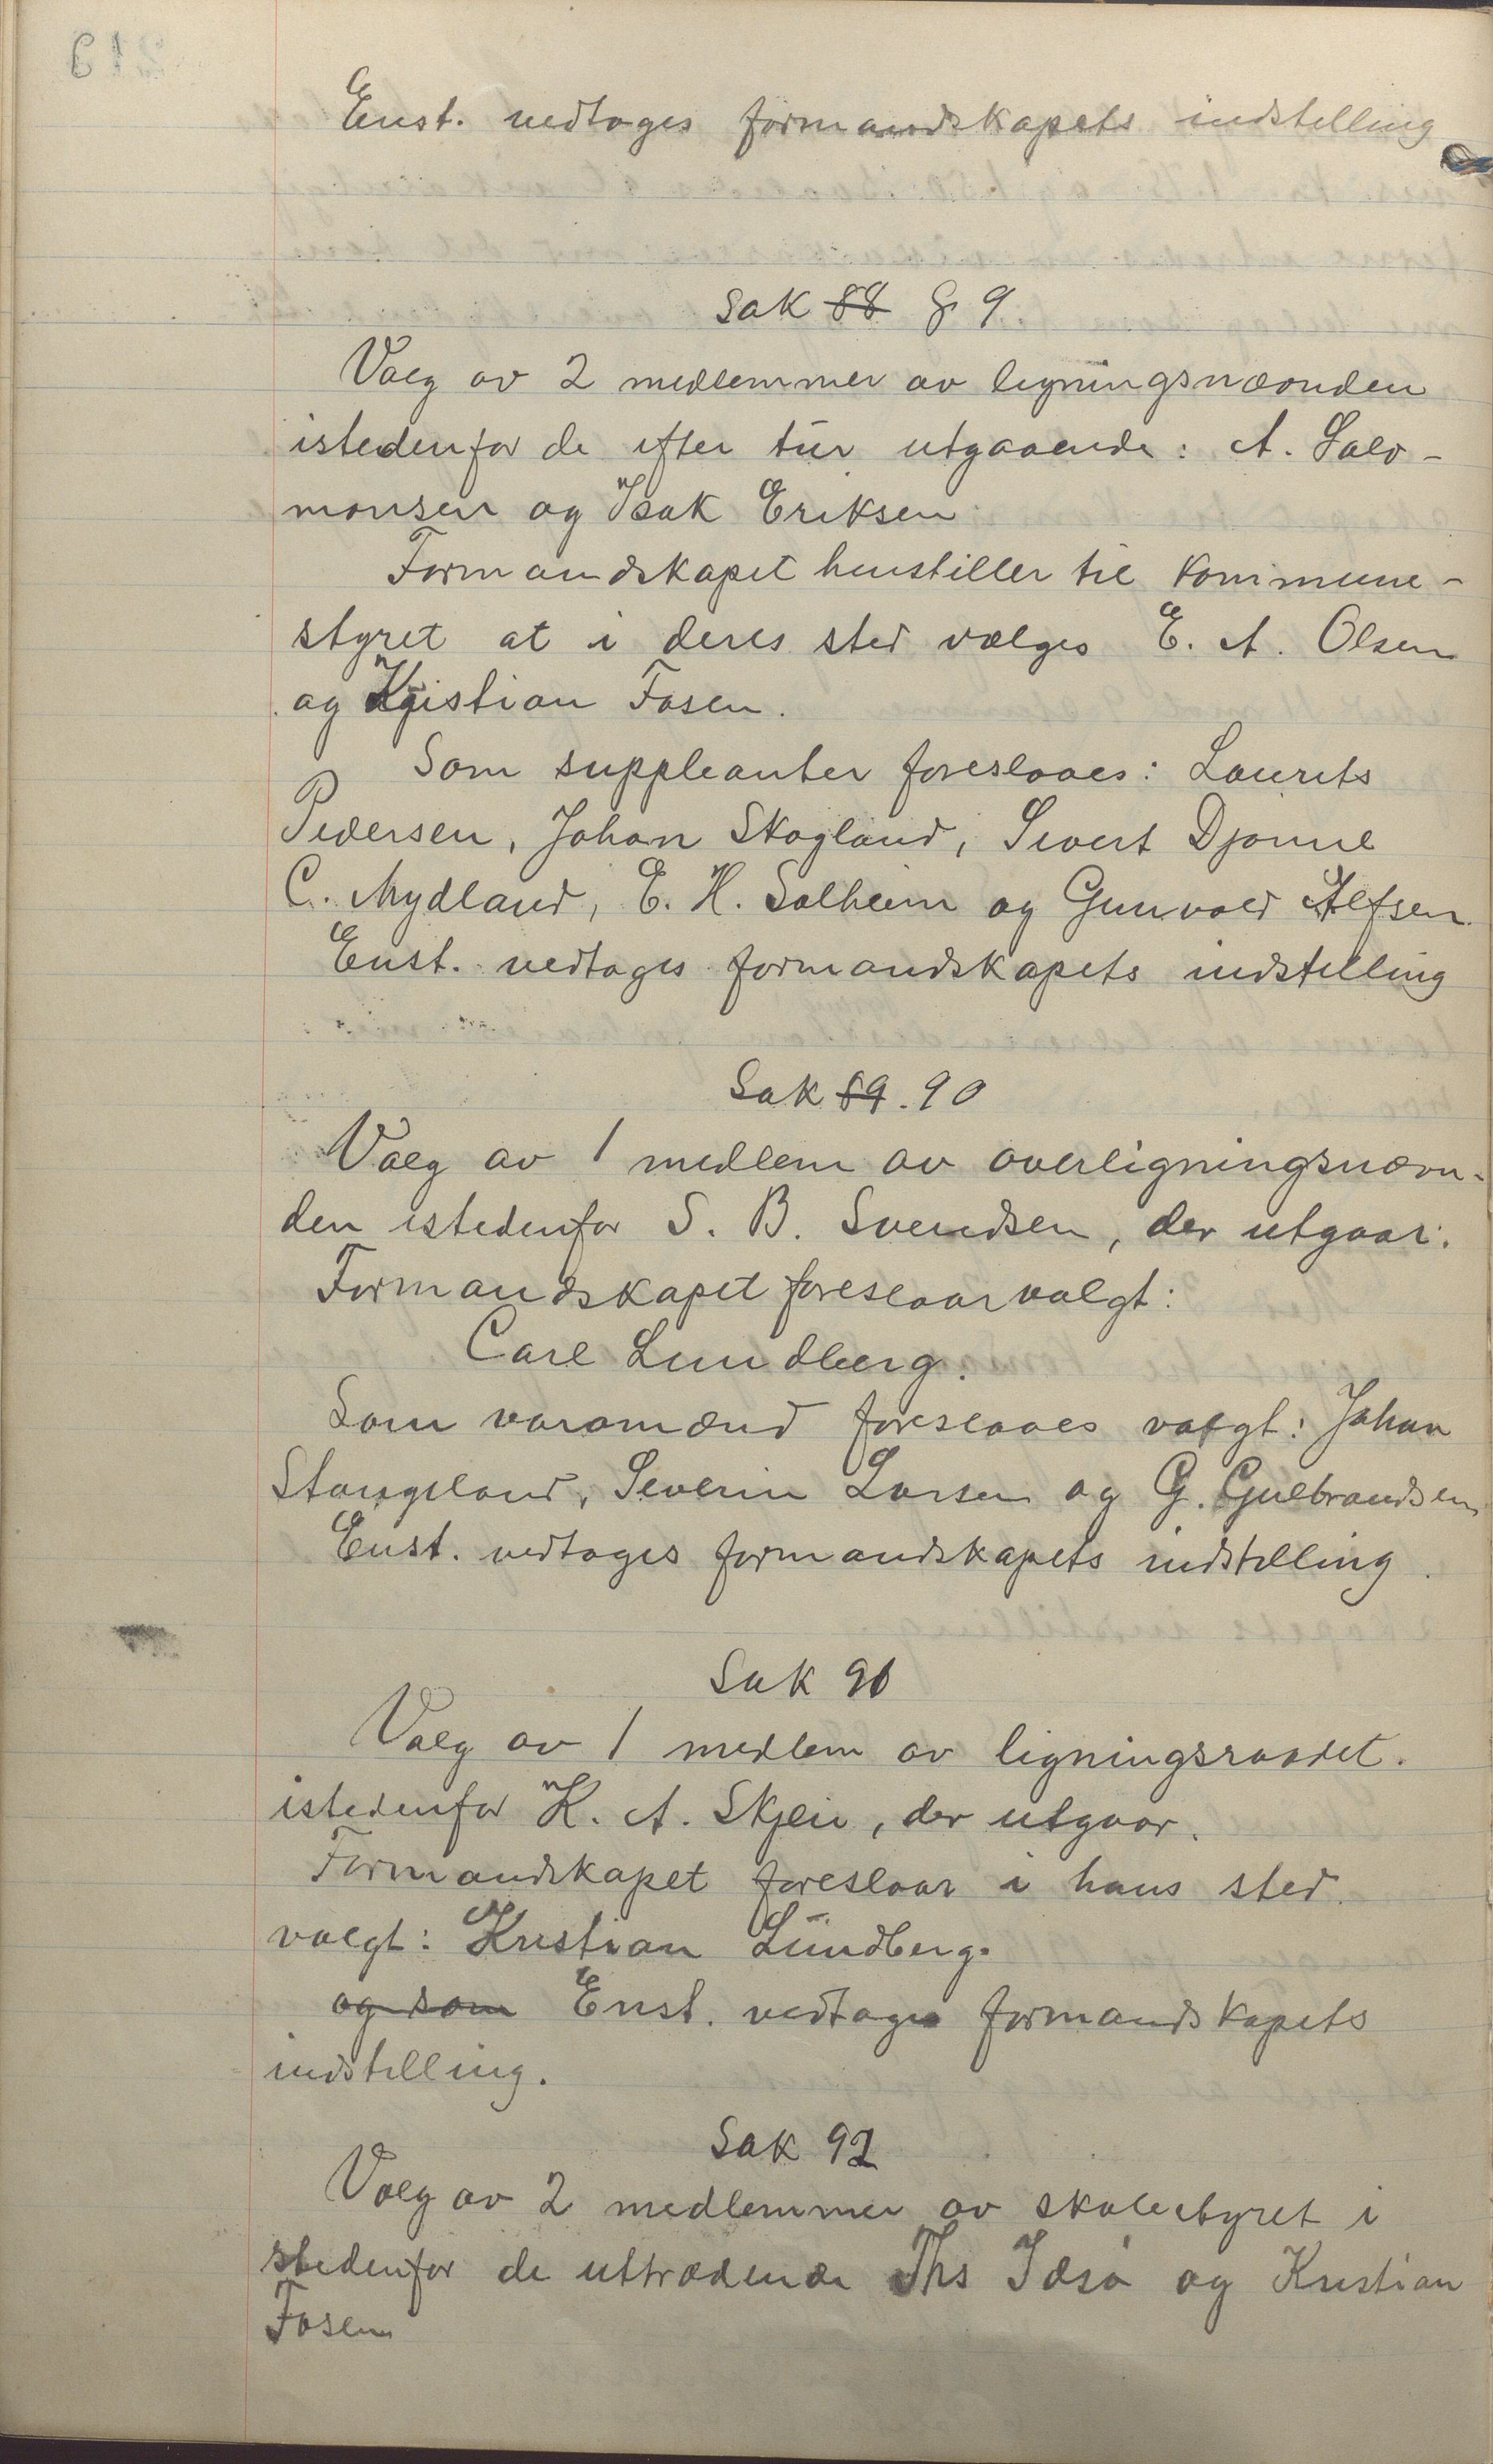 Enst. vedtages formandskapets indstilling
Sak 88 89.
Valg av 2 medlemmer av ligningsnævnden
istedenfor de efter tur utgaaende: A. Salo-
monsen og Isak Eriksen
Formandskapet henstiller til kommune-
styret at i deres sted vælges E. A. Olsen
og Kristian Fosen.
Som suppleanter foreslaaes: Laurits
Pedersen, Johan Skogland, Sivert Djønne
C. Mydland, E. H. Solheim og Gunvald Alfsen.
Enst. vedtages formandskapets indstilling
Sak 89. 90
Valg av 1 medlem av overligningsnævn-
den istedenfor S. B. Svendsen, der utgaar.
Formandskapet foreslaar valgt:
Carl Lundberg.
Som varamænd foreslaaes valgt: Johan
Stangeland, Severin Larsen og G. Gulbrandsen
Enst. vedtages formandskapets indstilling.
Sak 91
Valg av 1 medlem av ligningsraadet.
istedenfor K. A. Skjen, der utgaar.
Formandskapet foreslaar i hans sted
valgt: Kristian Lundberg.
og som Enst. vedtages formandskapets
indstilling.
Sak 92
Valg av 2 medlemmer av skolestyret i
stedenfor de uttrædende Ths Idsø og Kristian
Fosen